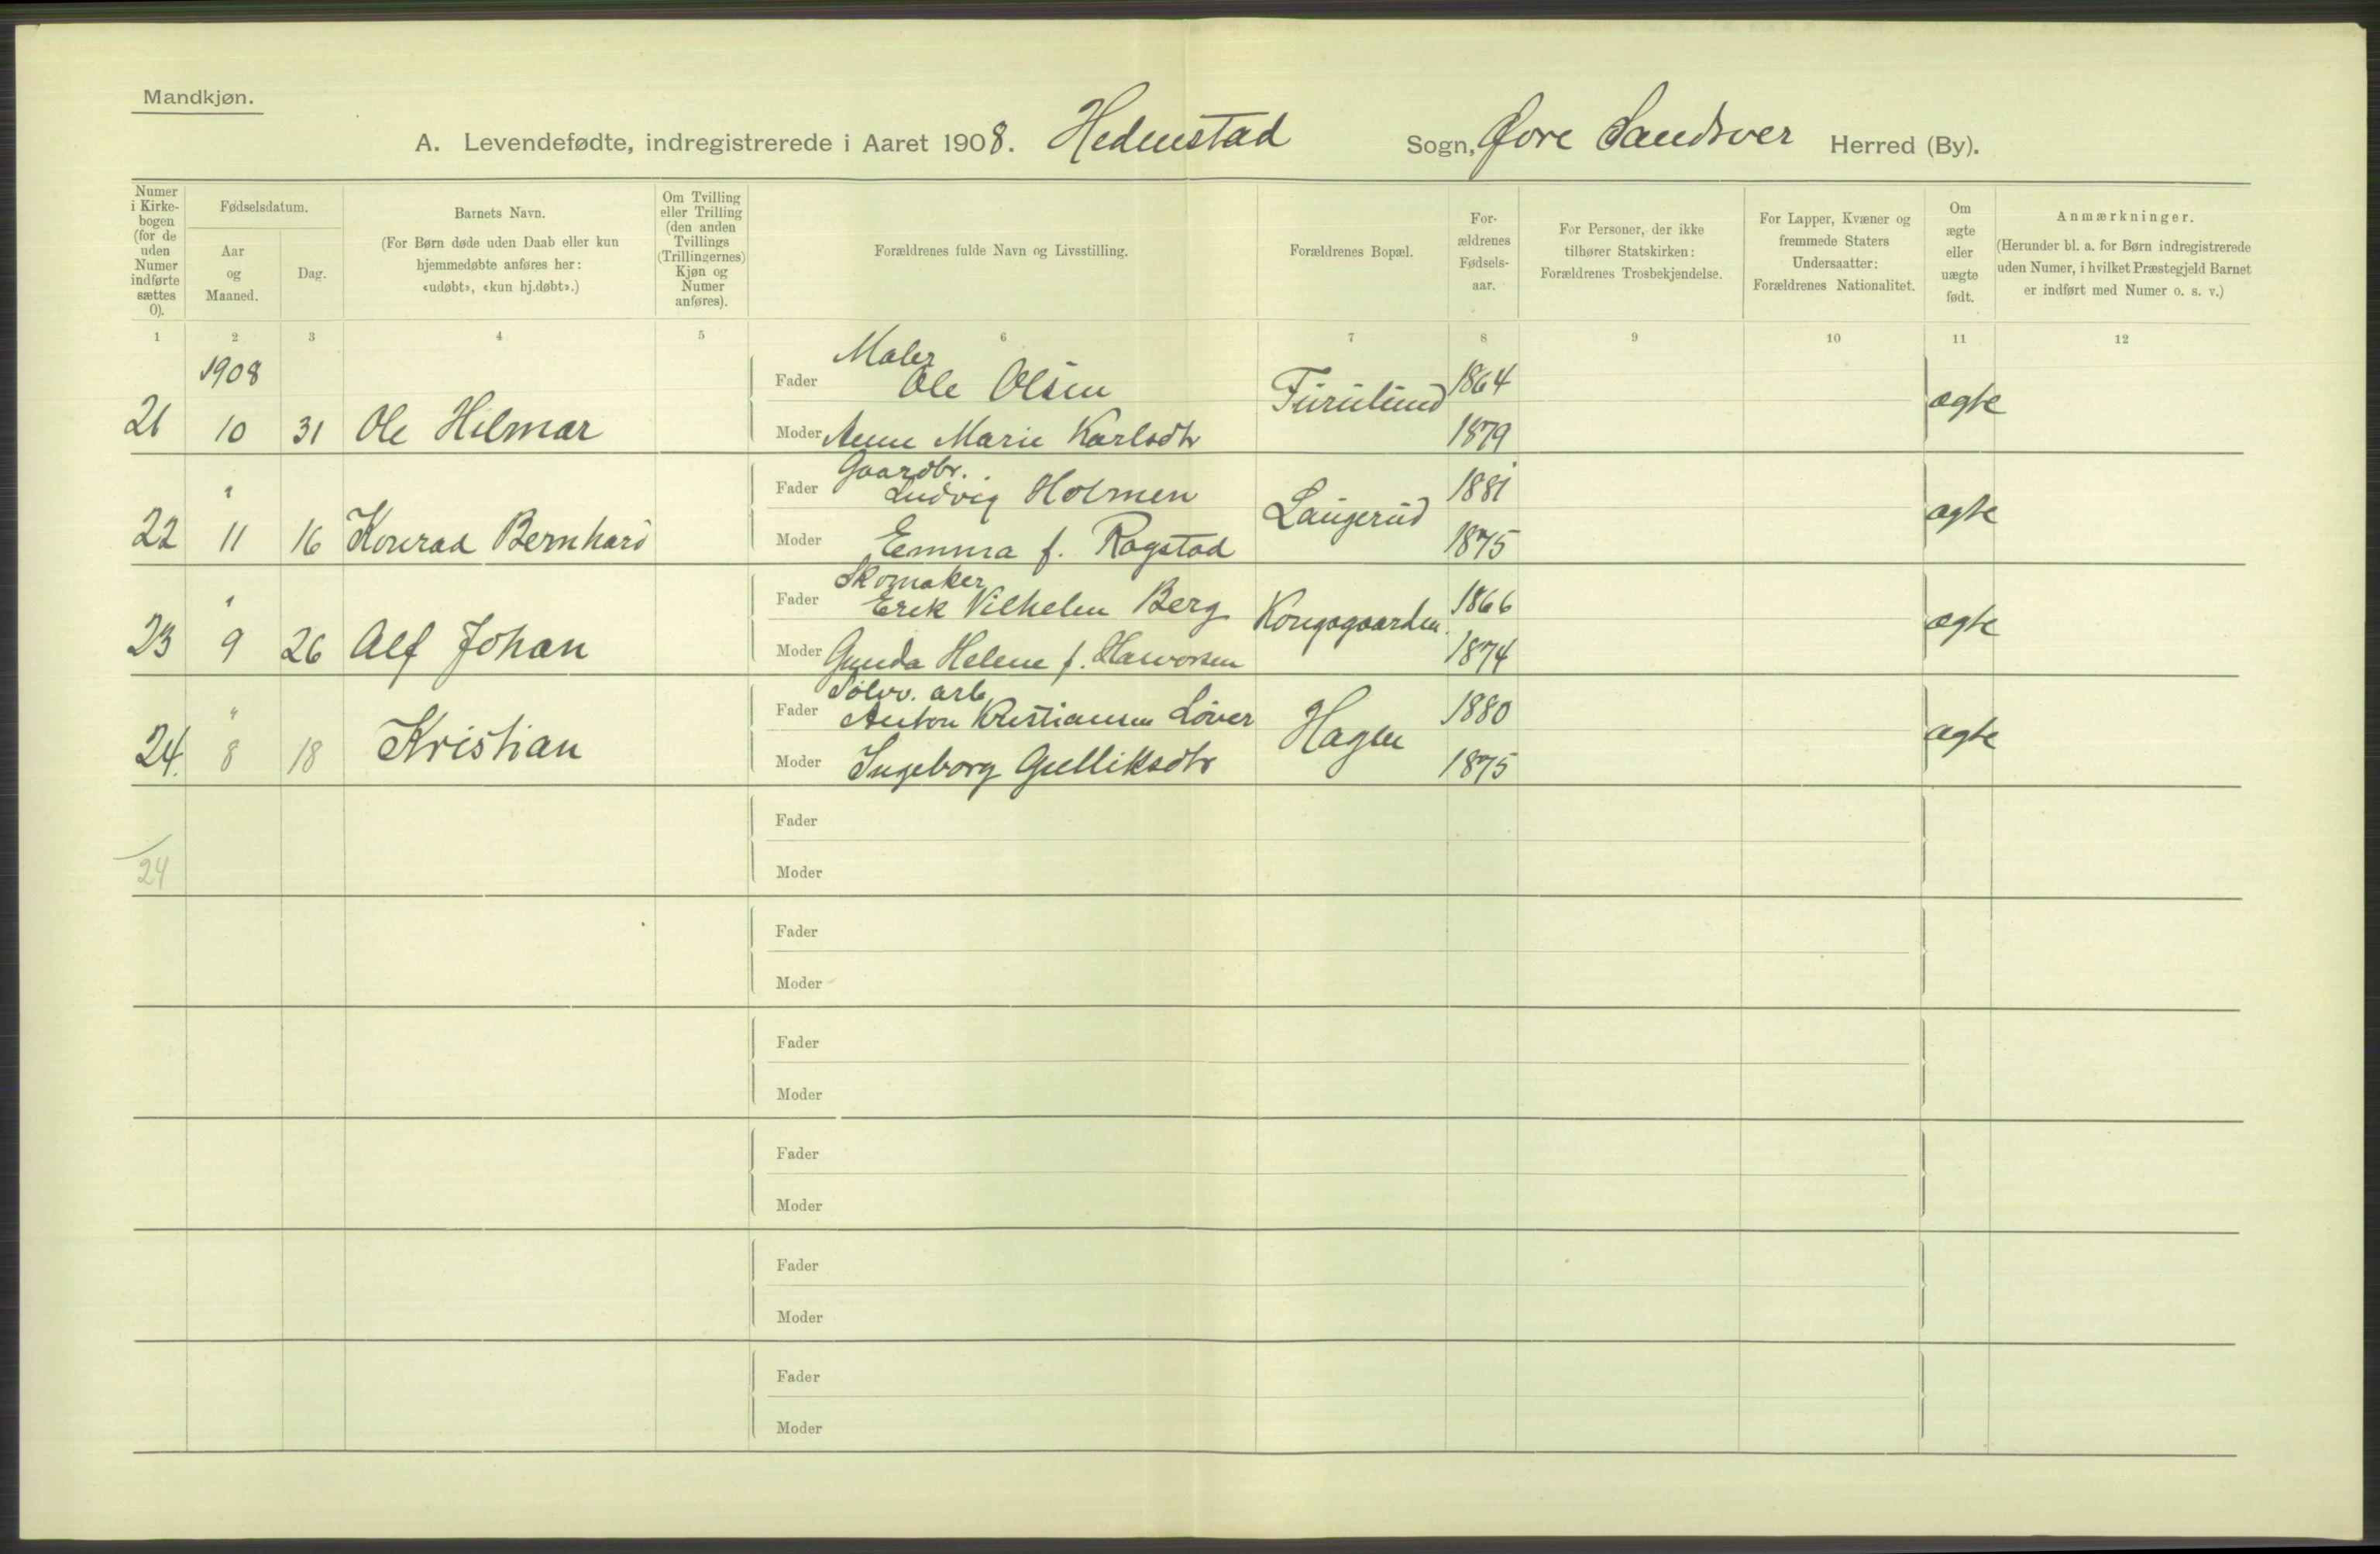 Mandkjøn.
A. Levendefødte, indregistrerede i Aaret 1908. Hedenstad Sogn, Øvre Sandsver Herred (By).
Numer
i Kirke-
bogen
(for de
uden
Numer
indførte
sættes
0).
Fødselsdatum.
Aar
og
Maaned.
Dag.
Barnets Navn.
(For Børn døde uden Daab eller kun
hjemmedøbte anføres her:
«udøbt», «kun hj.døbt».)
Om Tvilling
eller Trilling
(den anden
Tvillings
(Trillingernes)
Kjøn og
Numer
anføres).
Forældrenes fulde Navn og Livsstilling.
Forældrenes Bopæl.
For-
ældrenes
Fødsels-
aar.
For Personer, der ikke
tilhører Statskirken:
Forældrenes Trosbekjendelse.
For Lapper, Kvæner og
fremmede Staters
Undersaatter:
Forældrenes Nationalitet.
Om
ægte
eller
uægte
født.
Anmærkninger.
(Herunder bl. a. for Børn indregistrerede
uden Numer, i hvilket Præstegjeld Barnet
er indført med Numer o. s. v.)
1 2 3 4 5 6 7 8 9 10 11 12
1908
Maler
Fader Ole Olsen Furulund 1864 ægte
21 10 31 Ole Hilmar
Moder Anne Marie Karlsdtr 1879
Gaardbr.
" Fader Ludvig Holmen Laugerud 1881 ægte
22 11 16 Konrad Bernhard
Moder Emma f. Rogstad 1875
Skomaker
" Fader Erek Vilhelm Berg Kongsgaarden. 1866 ægte
23 9 26 Alf Johan
Moder Gunda Helene f. Halvorsen 1874
Sølvv. arb.
" Fader Anton Kristiansen Løver Hagen 1880 ægte
24. 8 18 Kristian
Moder Ingeborg Gulliksdtr 1875
Fader
24
Moder
Fader
Moder
Fader
Moder
Fader
Moder
Fader
Moder
Fader
Moder